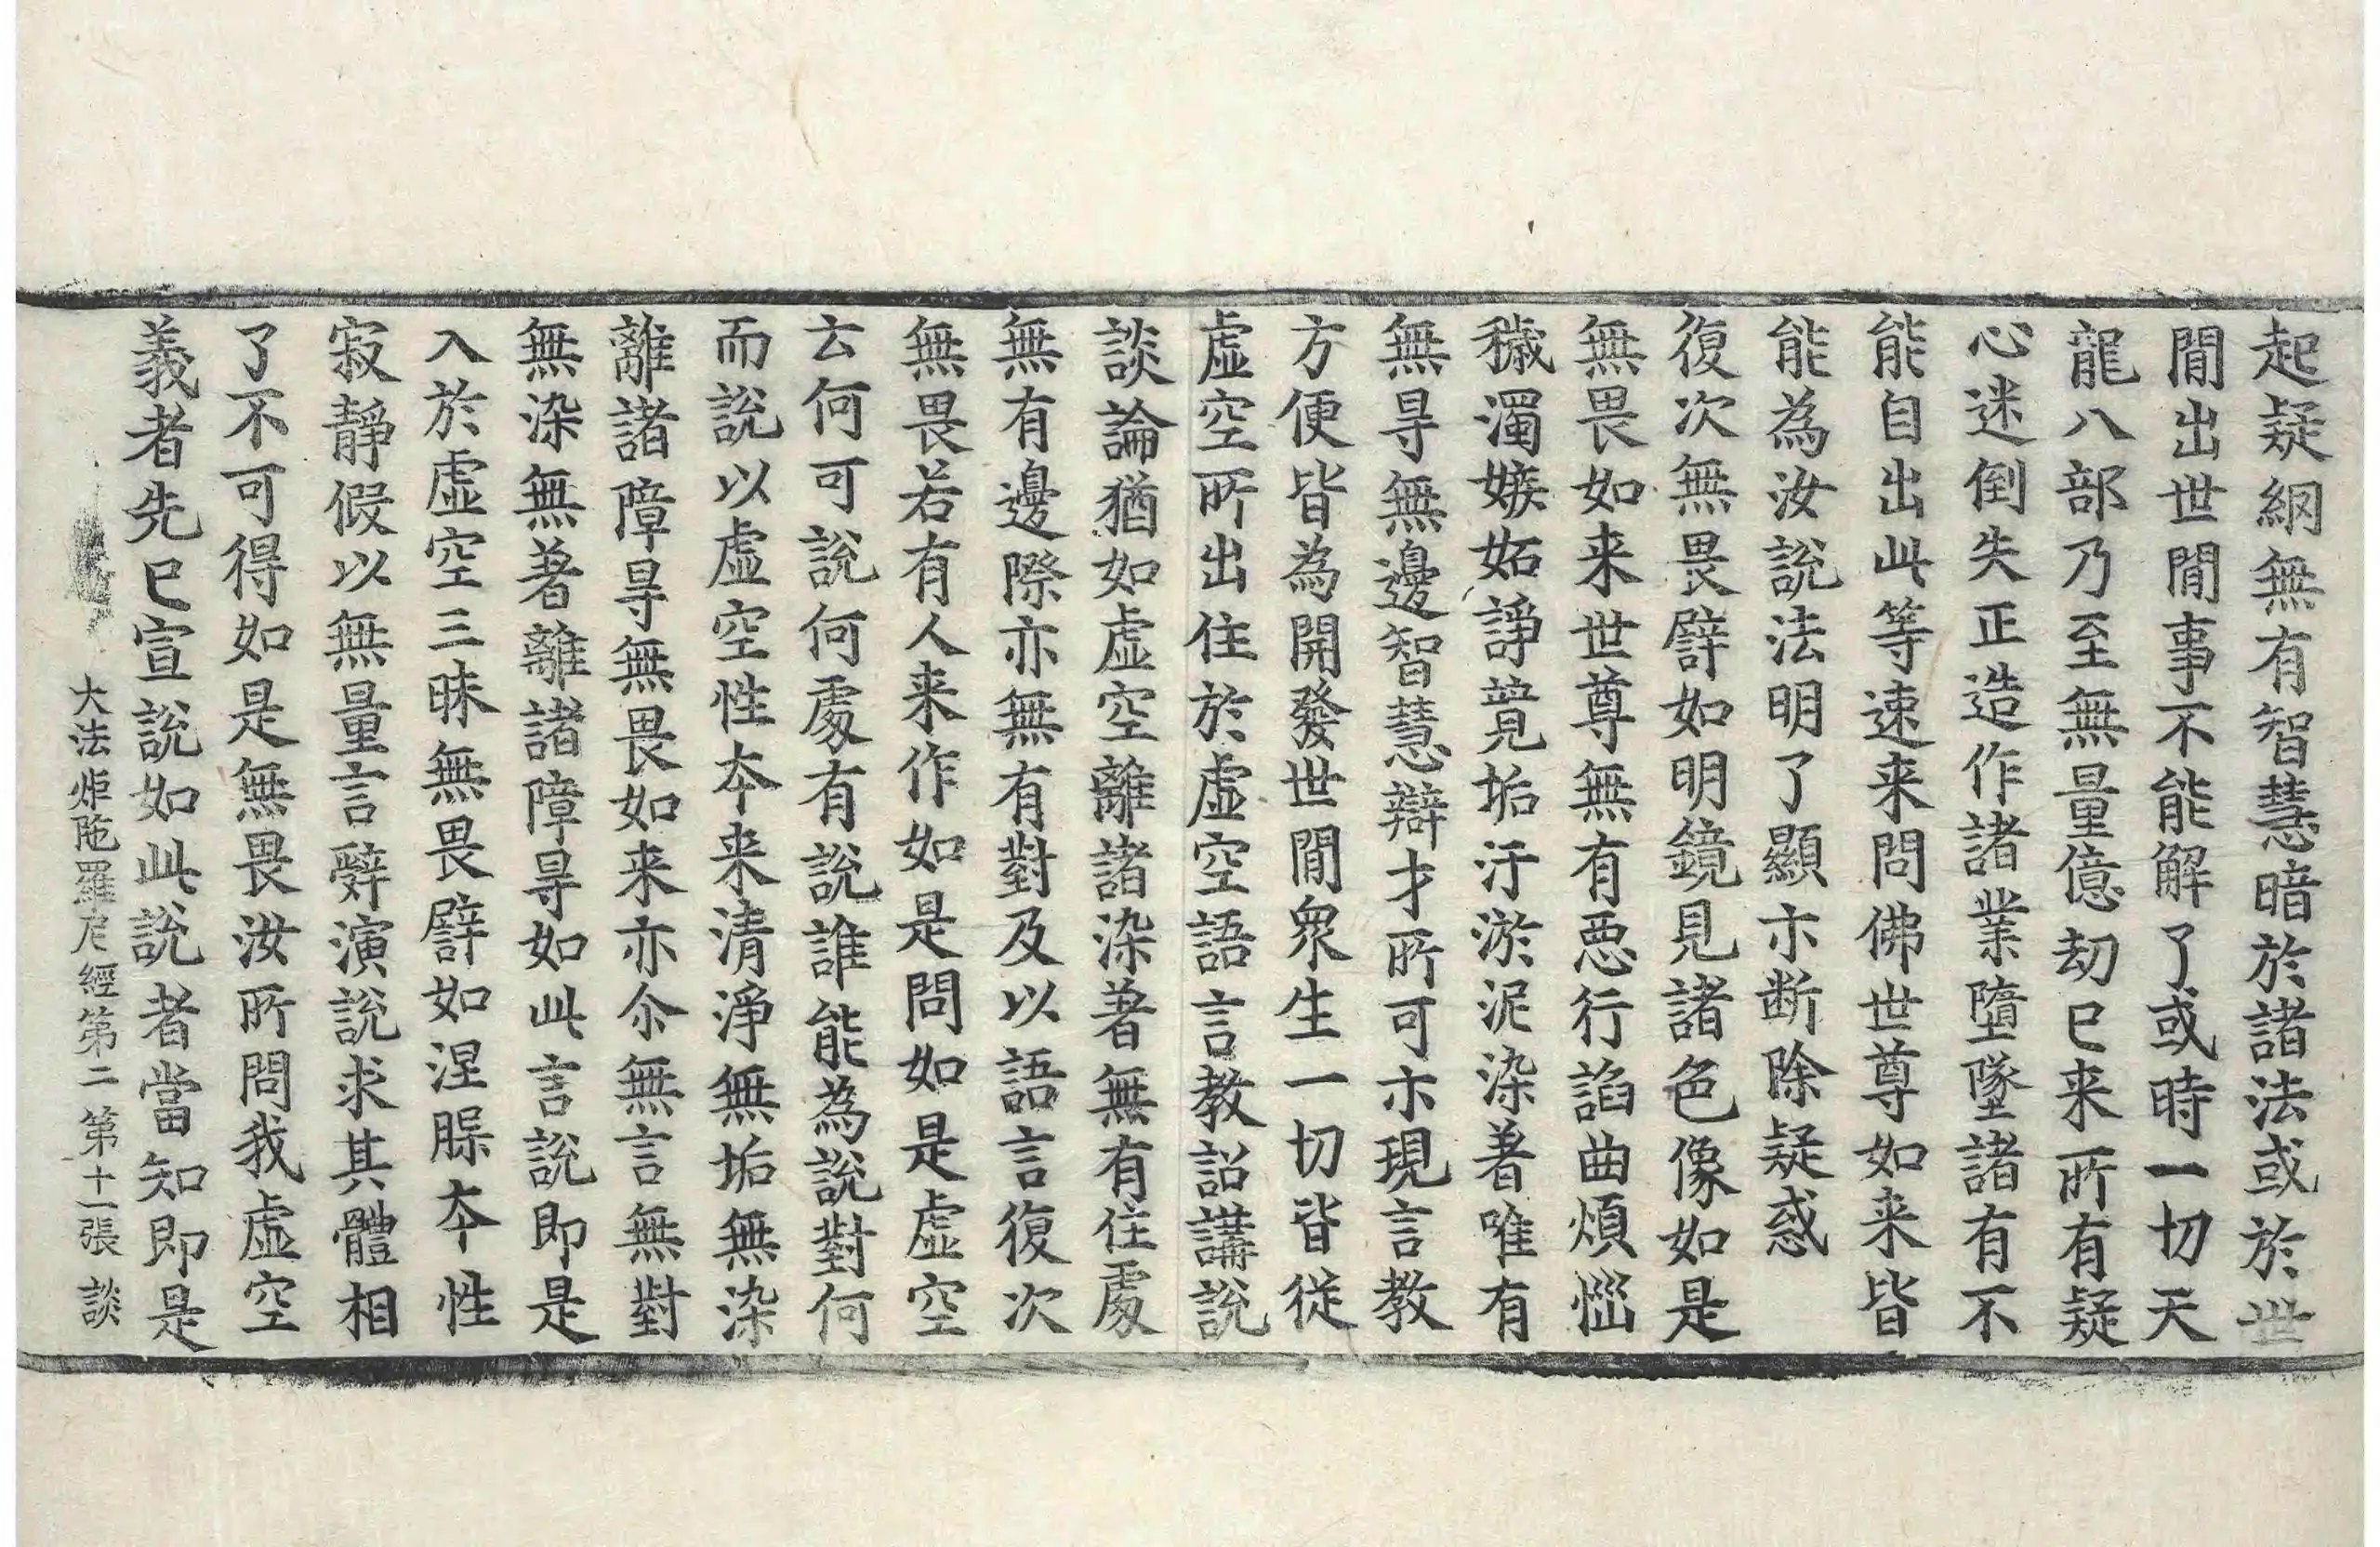 起疑網無有智慧暗於諸法或於世
間出世間事不能解了或時一切天
龍八部乃至無量億劫已来所有疑
心迷倒失正造作諸業墮墜諸有不
能自出此等速来問佛世尊如来皆
能為汝説法明了顯示断除疑惑
復次無畏譬如明鏡見諸色像如是
無畏如来世尊無有惡行諂曲煩惱
穢濁嫉妬諍競垢汙淤泥染著唯有
無㝵無邊智慧辯才所可示現言教
方便皆為開發世間衆生一切皆從
虚空所出住於虚空語言教詔講説
談論猶如虚空離諸染著無有住處
無有邊際亦無有對及以語言復次
無畏若有人来作如是問如是虚空
云何可説何處有説誰能為説對何
而説以虚空性夲来清淨無垢無染
離諸障㝵無畏如来亦尒無言無對
無染無著離諸障㝵如此言説即是
入於虚空三昧無畏譬如涅槃夲性
寂靜假以無量言辝演説求其體相
了不可得如是無畏汝所問我虚空
義者先已宣説如此説者當知即是
大法炬陁羅尼經第二 第十一張 談